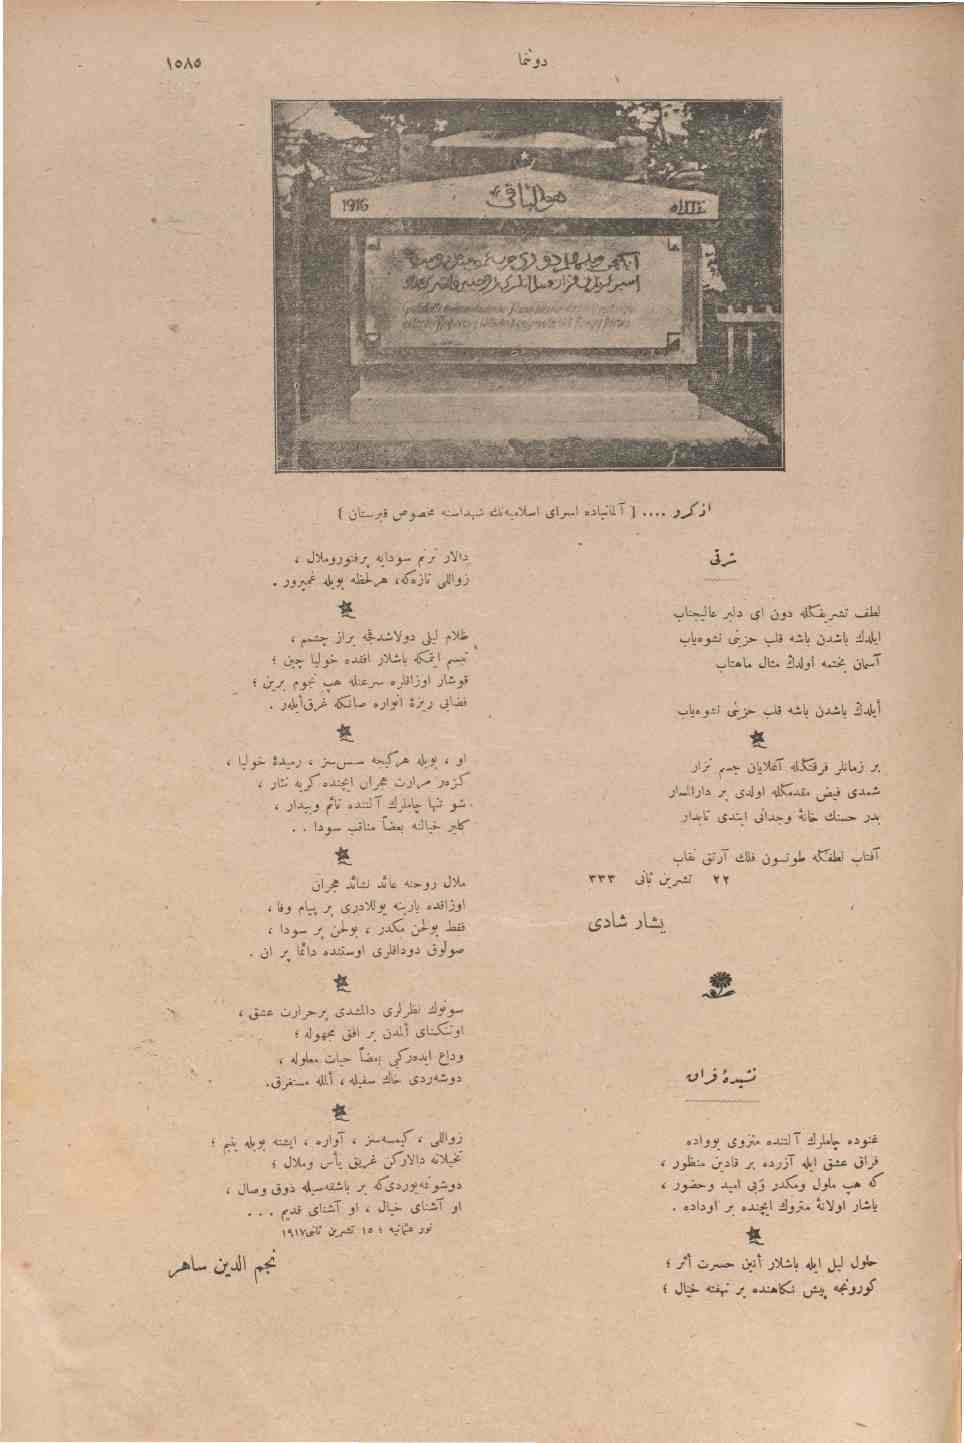 دوننما
١٥٨٥
1916
هوالباقی
اذکرو .... [ آلمانیاده اسرای اسلامیه‌نك شهداسنه مخصوص قبرستان ]
شرقی
لطف تشریفکله دون ای دلبر عالیجناب
ایلدك باشدن باشه قلب حزینی نشوه‌یاب
آسمان بختمه اولدڭ مثال ماهتاب
أیلدڭ باشدن باشه قلب حزینی نشوه‌یاب
بر زمانلر فرقتکله آغلایان جسم نزار
شمدی فیض مقدمکله اولدی بر دارالمسار
بدر حسنك خانهٔ وجدانی ایتدی تابدار
آفتاب لطفکه طوتسون فلك آرتق نقاب
٢٢ تشرین ثانی ٣٣٣
یشار شادی
نشیدهٔ فراق
غنوده چاملرك آلتنده منزوی یوواده
فراق عشق ایله آزرده بر قادین منظور ،
که هپ ملول ومکدر وبی امید وحضور ،
یاشار اولانهٔ متروك ایچنده بر اوداده .
حلول لیل ایله باشلار أنین حسرت أثر ؛
کورونجه پیش نکاهنده بر نهفته خیال ؛
دالار ترنم سودایه پرفتور وملال ،
زواللی تازه‌که ، هرلحظه بویله غمپرور .
ظلام لیلی دولاشدقجه براز چشمم ،
تبسم ایتمکه باشلار افقده خولیا چین ؛
قوشار اوزاقلره سرعتله هپ نجوم برین ؛
فضایی ریزهٔ انواره صانکه غرق‌أیلەر .
او ، بویله هرکیجه سسسز ، رمیدهٔ خولیا ،
کزەر مرارت هجران ایچنده کریه نثار ،
شو تنها چاملرك آلتنده نائم وبیدار ،
کلیر خیالنه بعضاً مناقب سودا . .
ملال روحنه عائد نشائد هجران
اوزاقده یارینه یوللادیری بر پیام وفا ،
فقط بولحن مکدر ، بولحن پر سودا ،
صولوق دوداقلری اوستنده دائما پر ان .
سونوك نظرلری دالمشدی پرحرارت عشق ،
اوتنکنای ألمدن بر افق مجهوله ؛
وداع ایدەرکبی بعضاً حیات معلوله ،
دوشەردی خاك سفیله ، ألمله مستغرق.
زواللی ، کیمسه‌سز ، آواره ، ایشته بویله یتیم ؛
تخیلاته دالارکن غریق یأس وملال ؛
دوشونەیوردی‌که بر باشقه‌سیله ذوق وصال ،
او آشنای خیال ، او آشنای قدیم ...
نور عثمانیه ؛ ١٥ تشرین ثانی١٩١٧
نجم الدین ساهر